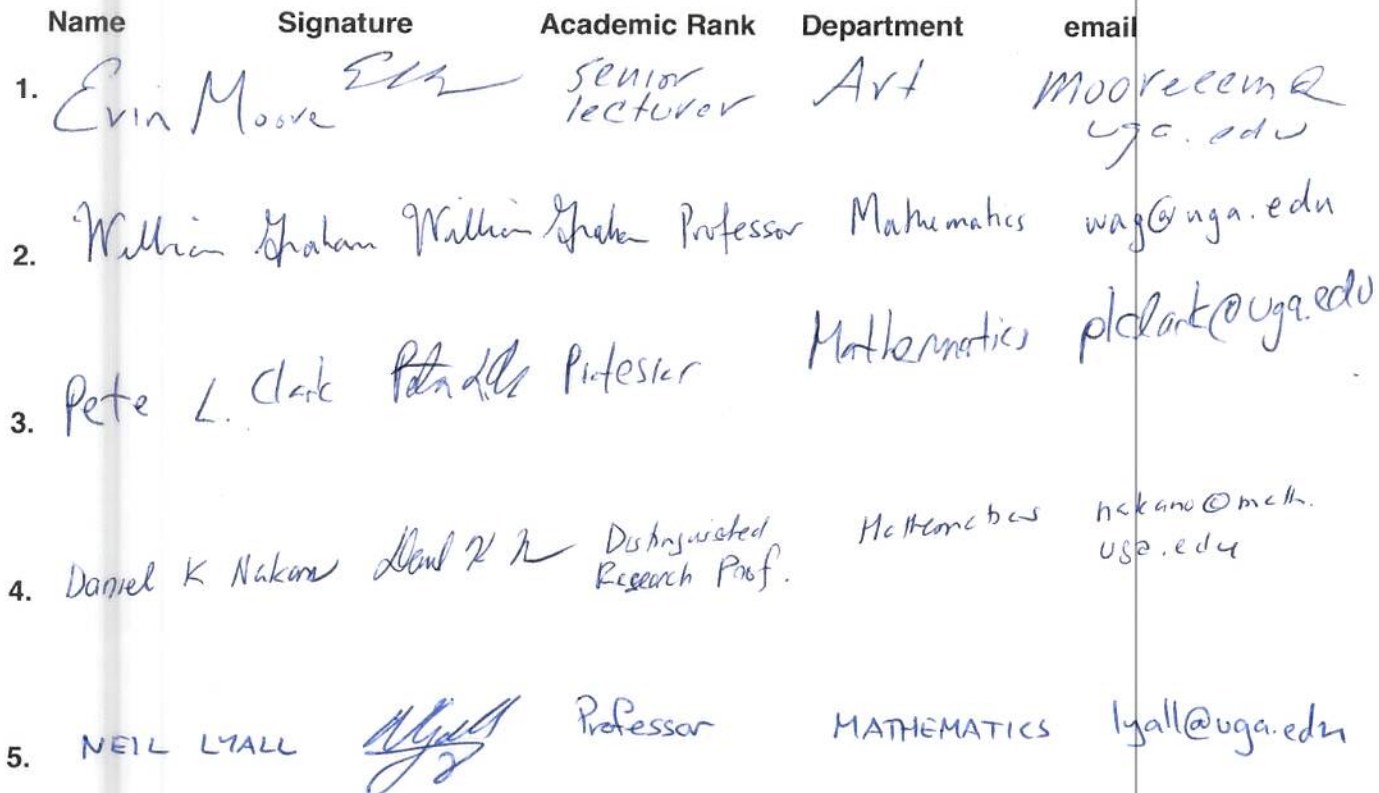 Name Signature Academic Rank Department email
1. Erin Moore senior lecturer Art mooreeem@
uga.edu
2. William Graham William Graham Professor Mathematics wag@uga.edu
3. Pete L. Clark Professor Mathematics plclark@uga.edu
4. Daniel K Nakano Distinguished Research Prof. Mathematics nakano@math.
uga.edu
5. NEIL LYALL Professor MATHEMATICS lyall@uga.edu